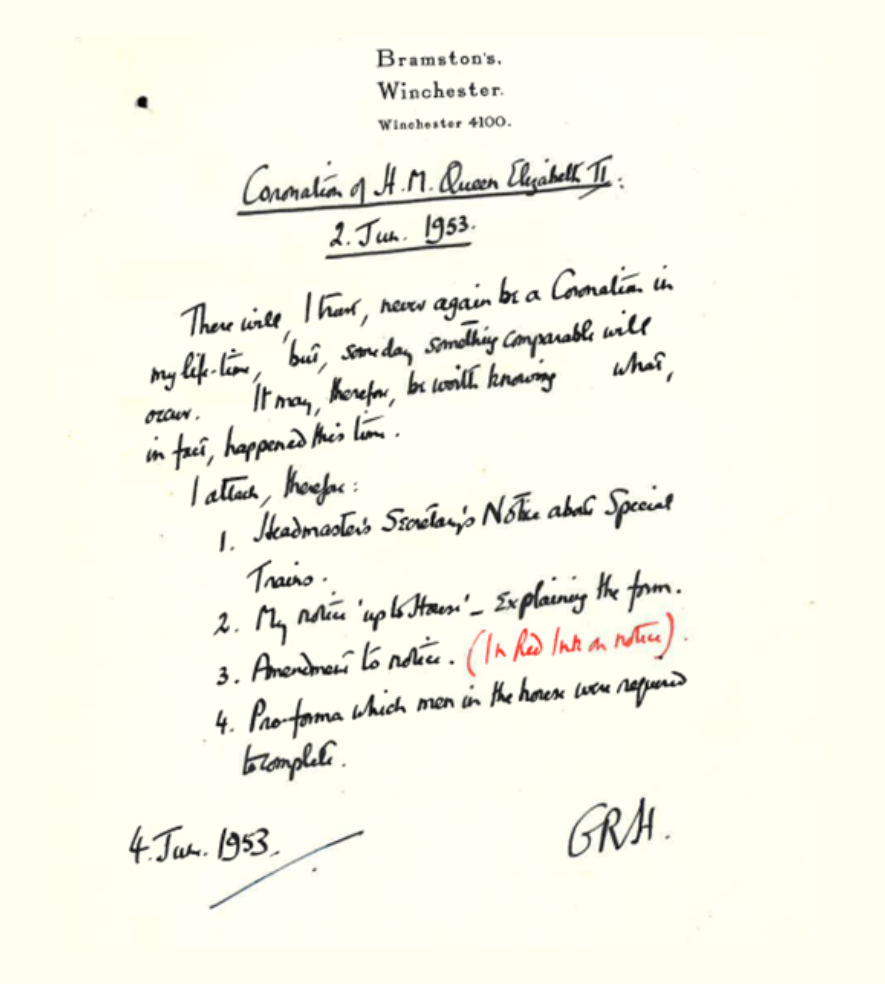 Bramston's,
Winchester.
Winchester 4100.
Coronation of H.M. Queen Elizabeth II:
2. Jun. 1953.
There will, I trust, never again be a Coronation in
my life-time, but, someday, something comparable will
occur. It may, therefore, be worth knowing what,
in fact, happened this time.
I attach, therefore:
1. Headmaster's Secretary's Notice about Special
Trains.
2. My notice 'up to House' – Explaining the form.
3. Amendment to notice. (In Red Ink on notice).
4. Pro-forma which men in the house were required
to complete.
4. Jun. 1953.
GRH.